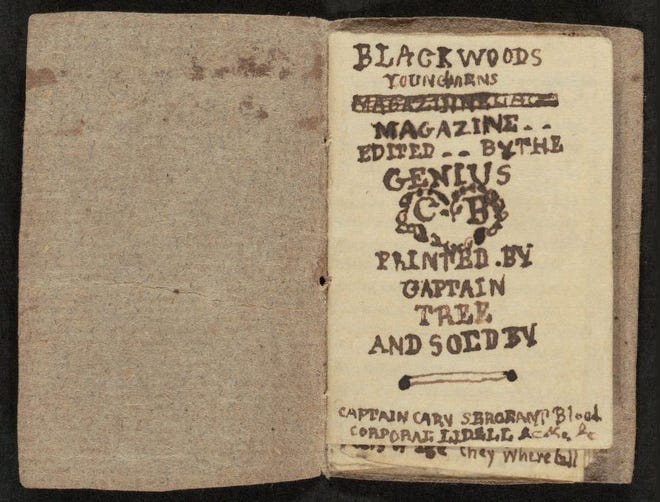 BLACKWOODS
YOUNGMENS
MAGAZINE--
EDITED--BYTHE
GENIUS
C·B
PRINTED.BY
CAPTAIN
TREE
AND SOLD BY
CAPTAIN CARY SERGEANT Blood
CORPORAL LIDELL &c &c &c
of age they where tall